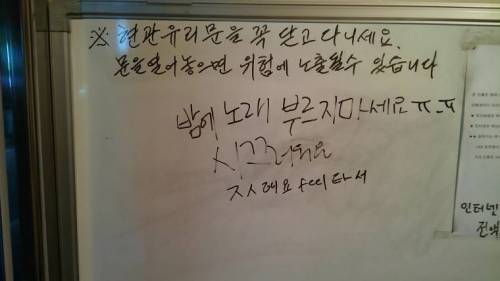 ※ 현관유리문을 꼭 닫고다니세요.
문을열어놓으면 위험에 노출될수 있습니다
밤에 노래 부르지마세요 ㅠ_ㅠ
시끄러워요
ㅈㅅ해요 feel타서
인터넷
전액